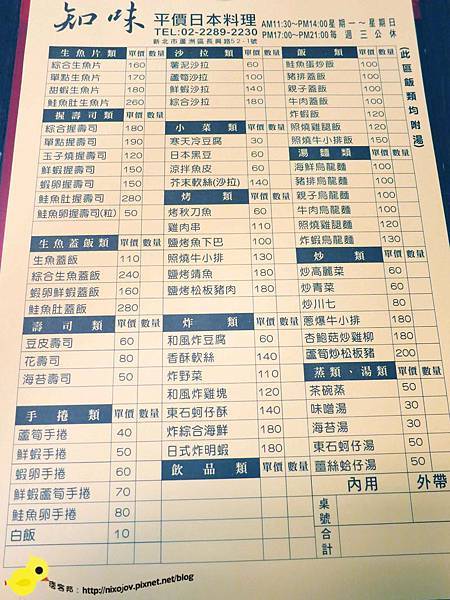 知味 平價日本料理
TEL:02-2289-2230
新北市蘆洲區長興路52-1號
AM11:30~PM14:00星期一~星期日
PM17:00~PM21:00每週三公休
(此區飯類均附湯)
生魚片類 單價 數量
綜合生魚片 160
單點生魚片 170
甜蝦生魚片 180
鮭魚肚生魚片 260
握壽司類 單價 數量
綜合握壽司 180
單點握壽司 190
玉子燒握壽司 120
鮮蝦握壽司 150
蝦卵握壽司 150
鮭魚肚握壽司 280
鮭魚卵握壽司(粒) 50
生魚蓋飯類 單價 數量
生魚蓋飯 110
綜合生魚蓋飯 240
蝦卵鮮蝦蓋飯 160
鮭魚肚蓋飯 280
壽司類 單價 數量
豆皮壽司 60
花壽司 80
海苔壽司 50
手捲類 單價 數量
蘆筍手捲 40
鮮蝦手捲 50
蝦卵手捲 60
鮮蝦蘆筍手捲 70
鮭魚卵手捲 80
白飯 10
沙拉類 單價 數量
薯泥沙拉 60
蘆筍沙拉 100
鮮蝦沙拉 100
綜合沙拉 180
小菜類 單價 數量
寒天冷豆腐 30
日本黑豆 60
涼拌魚皮 60
芥末軟絲(沙拉) 140
烤類 單價 數量
烤秋刀魚 60
雞肉串 110
照燒牛小排 180
鹽烤魚下巴 100
鹽烤鯖魚 180
鹽烤松板豬肉 180
炸類 單價 數量
和風炸豆腐 60
香酥軟絲 140
炸野菜 110
和風炸雞塊 120
東石蚵仔酥 140
炸綜合海鮮 180
日式炸明蝦 180
飲品類 單價 數量
飯類 單價 數量
鮭魚蛋炒飯 100
豬排蓋飯 100
親子蓋飯 100
牛肉蓋飯 100
炸蝦飯 150
照燒雞腿飯 120
照燒牛小排飯 150
湯麵類 單價 數量
海鮮烏龍麵 100
豬排烏龍麵 100
親子烏龍麵 100
牛肉烏龍麵 100
照燒雞腿麵 120
炸蝦烏龍麵 130
炒類 單價 數量
炒高麗菜 60
炒青菜 60
炒川七 80
蔥爆牛小排 180
杏鮑菇炒雞柳 180
蘆筍炒松板豬 200
蒸類、湯類 單價 數量
茶碗蒸 50
味噌湯 30
海苔湯 30
東石蚵仔湯 50
薑絲蛤仔湯 50
內用 外帶
桌號
合計
痞客邦：http://nixojov.pixnet.net/blog